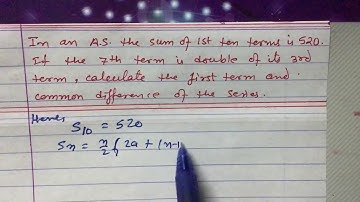 In an A.S. the sum of 1st ten terms is 520.
If the 7th term is double of its 3rd
term, calculate the first term and
common difference of the series.
Here,
S10 = 520
Sn = n/2 { 2a + (n-1